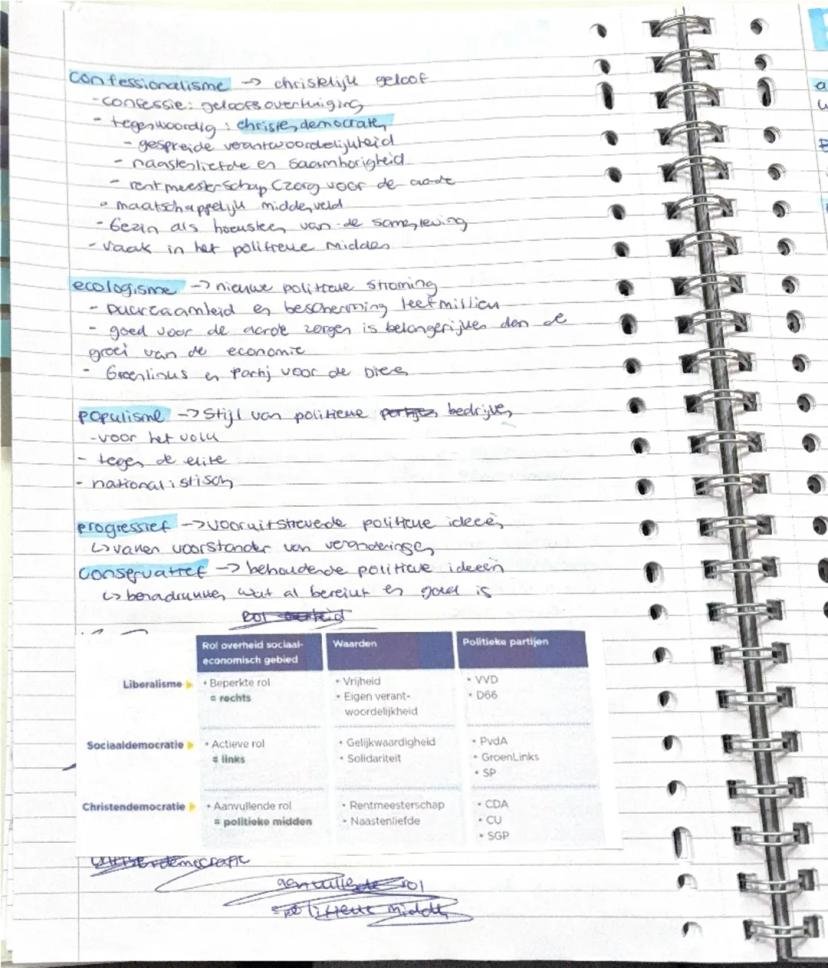 confessionalisme -> christelijk geloof
- confessie: geloofsovertuiging
- tegenwoordig: christendemocraten
- gespreide verantwoordelijkheid
- naastenliefde en saamhorigheid
- rentmeesterschap (zorg voor de aarde
• maatschappelijk middenveld
- Gezin als hoeksteen van de samenleving
- vaak in het politieke midden
ecologisme -> nieuwe politieke stroming
- Duurzaamheid en bescherming leefmilieu
- goed voor de aarde zorgen is belangrijker dan de
groei van de economie
- Groenlinks en Partij voor de Dieren
populisme -> Stijl van politieke partijen bedrijven
- voor het volk
- tegen de elite
- nationalistisch
progressief -> vooruitstrevende politieke ideeën
↳ vaken voorstander van veranderingen
conservatief -> behoudende politieke ideeën
↳ benadrukken wat al bereikt en goed is
Rol overheid
Rol overheid sociaal-economisch gebied Waarden Politieke partijen
Liberalisme • Beperkte rol • Vrijheid • VVD
= rechts • Eigen verant- • D66
woordelijkheid
Sociaaldemocratie • Actieve rol • Gelijkwaardigheid • PvdA
= links • Solidariteit • GroenLinks
• SP
Christendemocratie • Aanvullende rol • Rentmeesterschap • CDA
= politieke midden • Naastenliefde • CU
• SGP
aanvullende rol
politieke midden